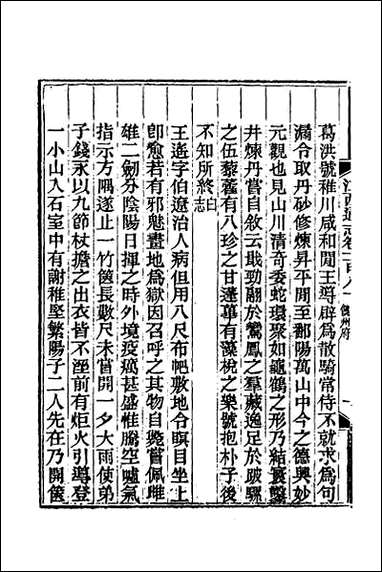 葛洪號稚川咸和間王導辟為散騎常侍不就求為句
漏令取丹砂修煉昇平間至鄱陽萬山中今之德興妙
元觀也見山川清奇委蛇環聚如龜鶴之形乃結寰鑿
井煉丹嘗自敘云戢勁翮於鸞鳳之羣藏逸足於跛驢
之伍藜藿有八珍之甘蓬蓽有藻梲之樂號抱朴子後
不知所終白志
王遙字伯遼治人病但用八尺布帊敷地令瞑目坐上
卽愈若有邪魅畫地為獄因召呼之其物自斃嘗佩雌
雄二劒分陰陽日揮之時外境疫癘甚盛惟騰空噓氣
指示方隅遂止一竹篋長數尺未嘗開一夕大雨使弟
子錢永以九節杖擔之出衣皆不溼前有炬火引導登
一小山入石室中有謝稚堅繁陽子二人先在乃開篋